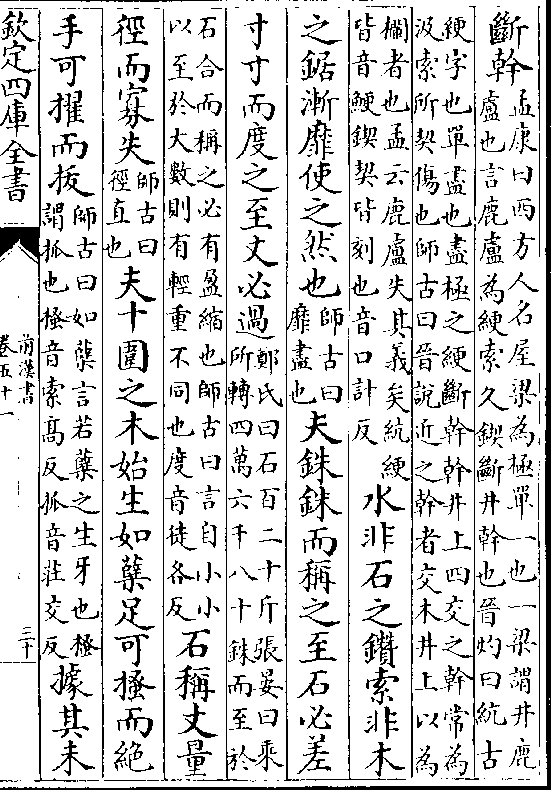 斷幹孟康曰西方人名屋梁為極單一也一梁謂井鹿
盧也言鹿盧為綆索久鍥斷井幹也晉灼曰統古
綆字也單盡也盡極之綆斷幹幹井上四交之幹常為
汲索所契傷也師古曰晉説近之幹者交木井上以為
欄者也孟云鹿盧失其義矣統綆
皆音鯁鍥契皆刻也音口計反水非石之鑽索非木
之鋸漸靡使之然也師古曰靡盡也夫銖銖而稱之至石必差
寸寸而度之至丈必過鄭氏曰石百二十斤張晏曰乘
所轉四萬六千八十銖而至於
石合而稱之必有盈縮也師古曰言自小小
以至於大數則有輕重不同也度音徒各反石稱丈量
徑而寡失師古曰徑直也夫十圍之木始生如蘖足可搔而絶
手可擢而拔師古曰如蘖言若蘖之生牙也搔
謂抓也搔音索髙反抓音莊交反據其未
欽定四庫全書
前漢書
卷五十一
三十